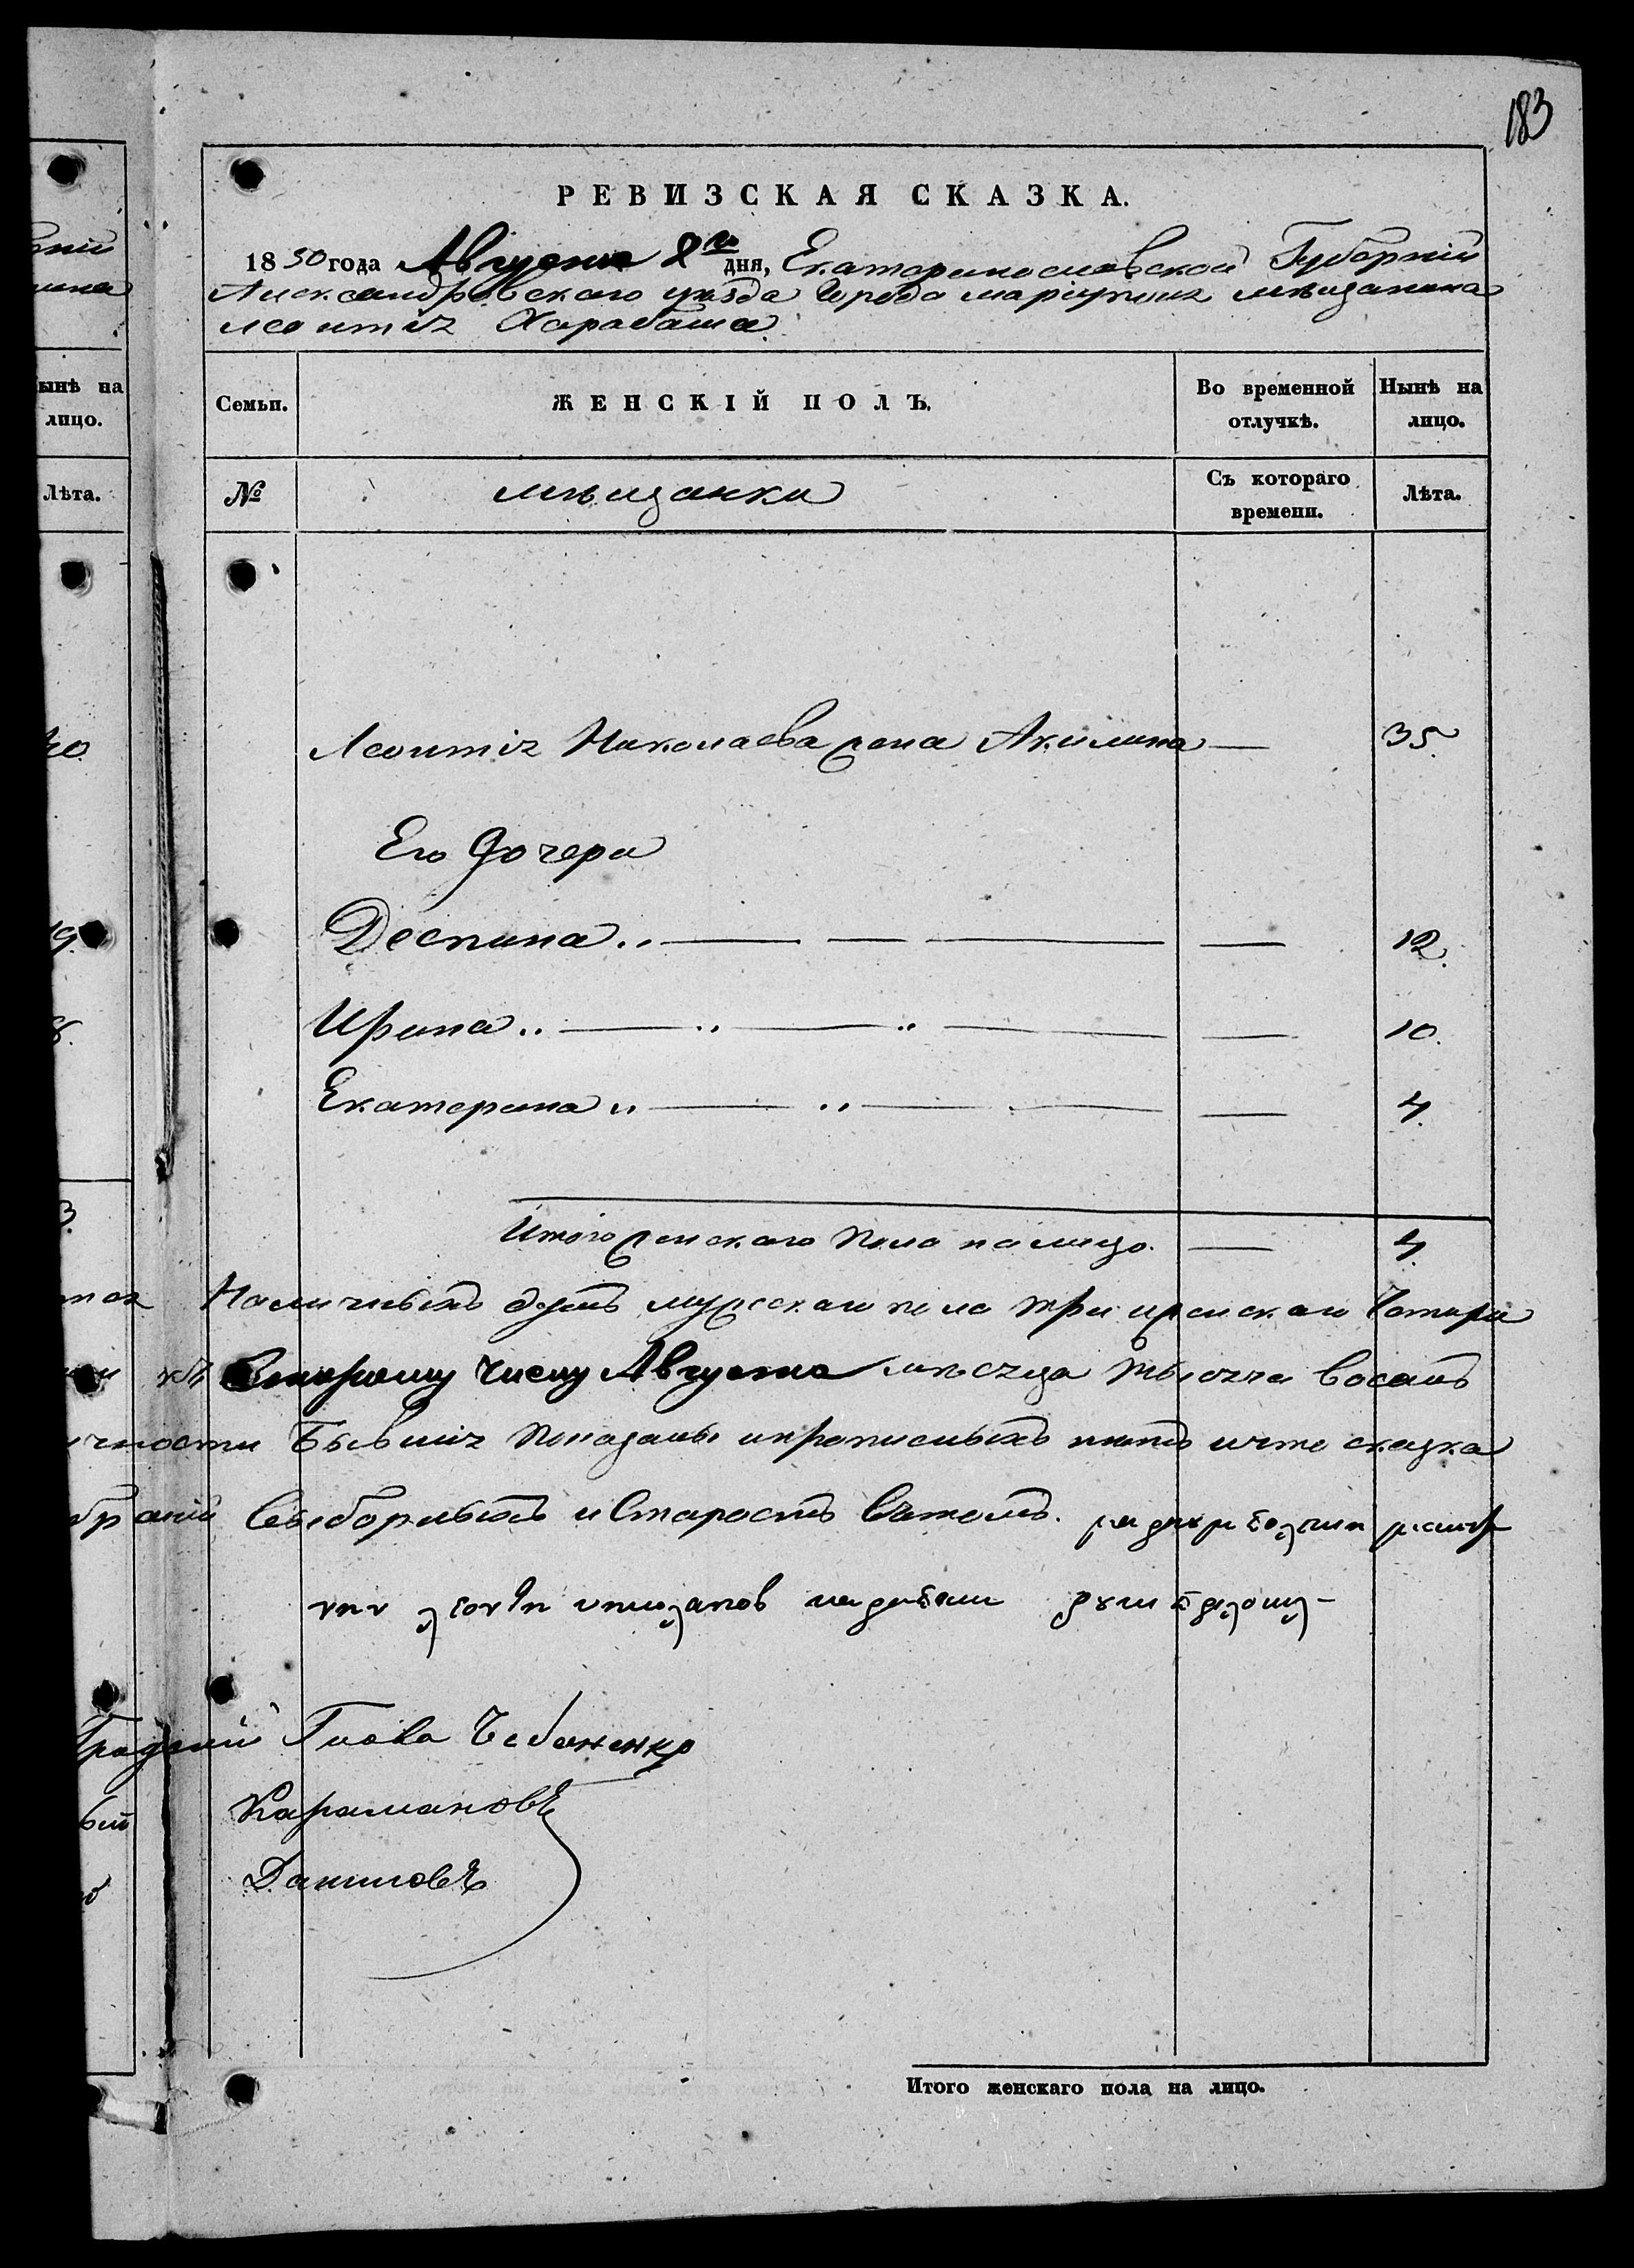 183
РЕВИЗСКАЯ СКАЗКА.
1850 года Августа 2го дня, Екатеринославской Губерній
Александровскаго уѣзда Города Маріуполя мѣщанина
Леонтія Харабаша.
ынѣ на лицо.
Лѣта.
Семьи. ЖЕНСКІЙ ПОЛЪ. Во временной отлучкѣ. Нынѣ на лицо.
№ мѣщанки Съ котораго времени. Лѣта.
Леонтія Николаева жена Акилина — 35.
Его Дочери
Деспина — 12.
Ирина — 10.
Екатерина — 4.
Итого женскаго пола на лицо. — 4.
Наличныхъ душъ мужескаго пола три женскаго Четыри
къ Второму числу Августа мѣсяца тысяча восемь
Бывшія показаны и прописныхъ нѣтъ и что сказка
выборныхъ и Старостъ въ томъ.
Градский Глова Чебаненко
Карамановъ
Даниловъ
Итого женскаго пола на лицо.